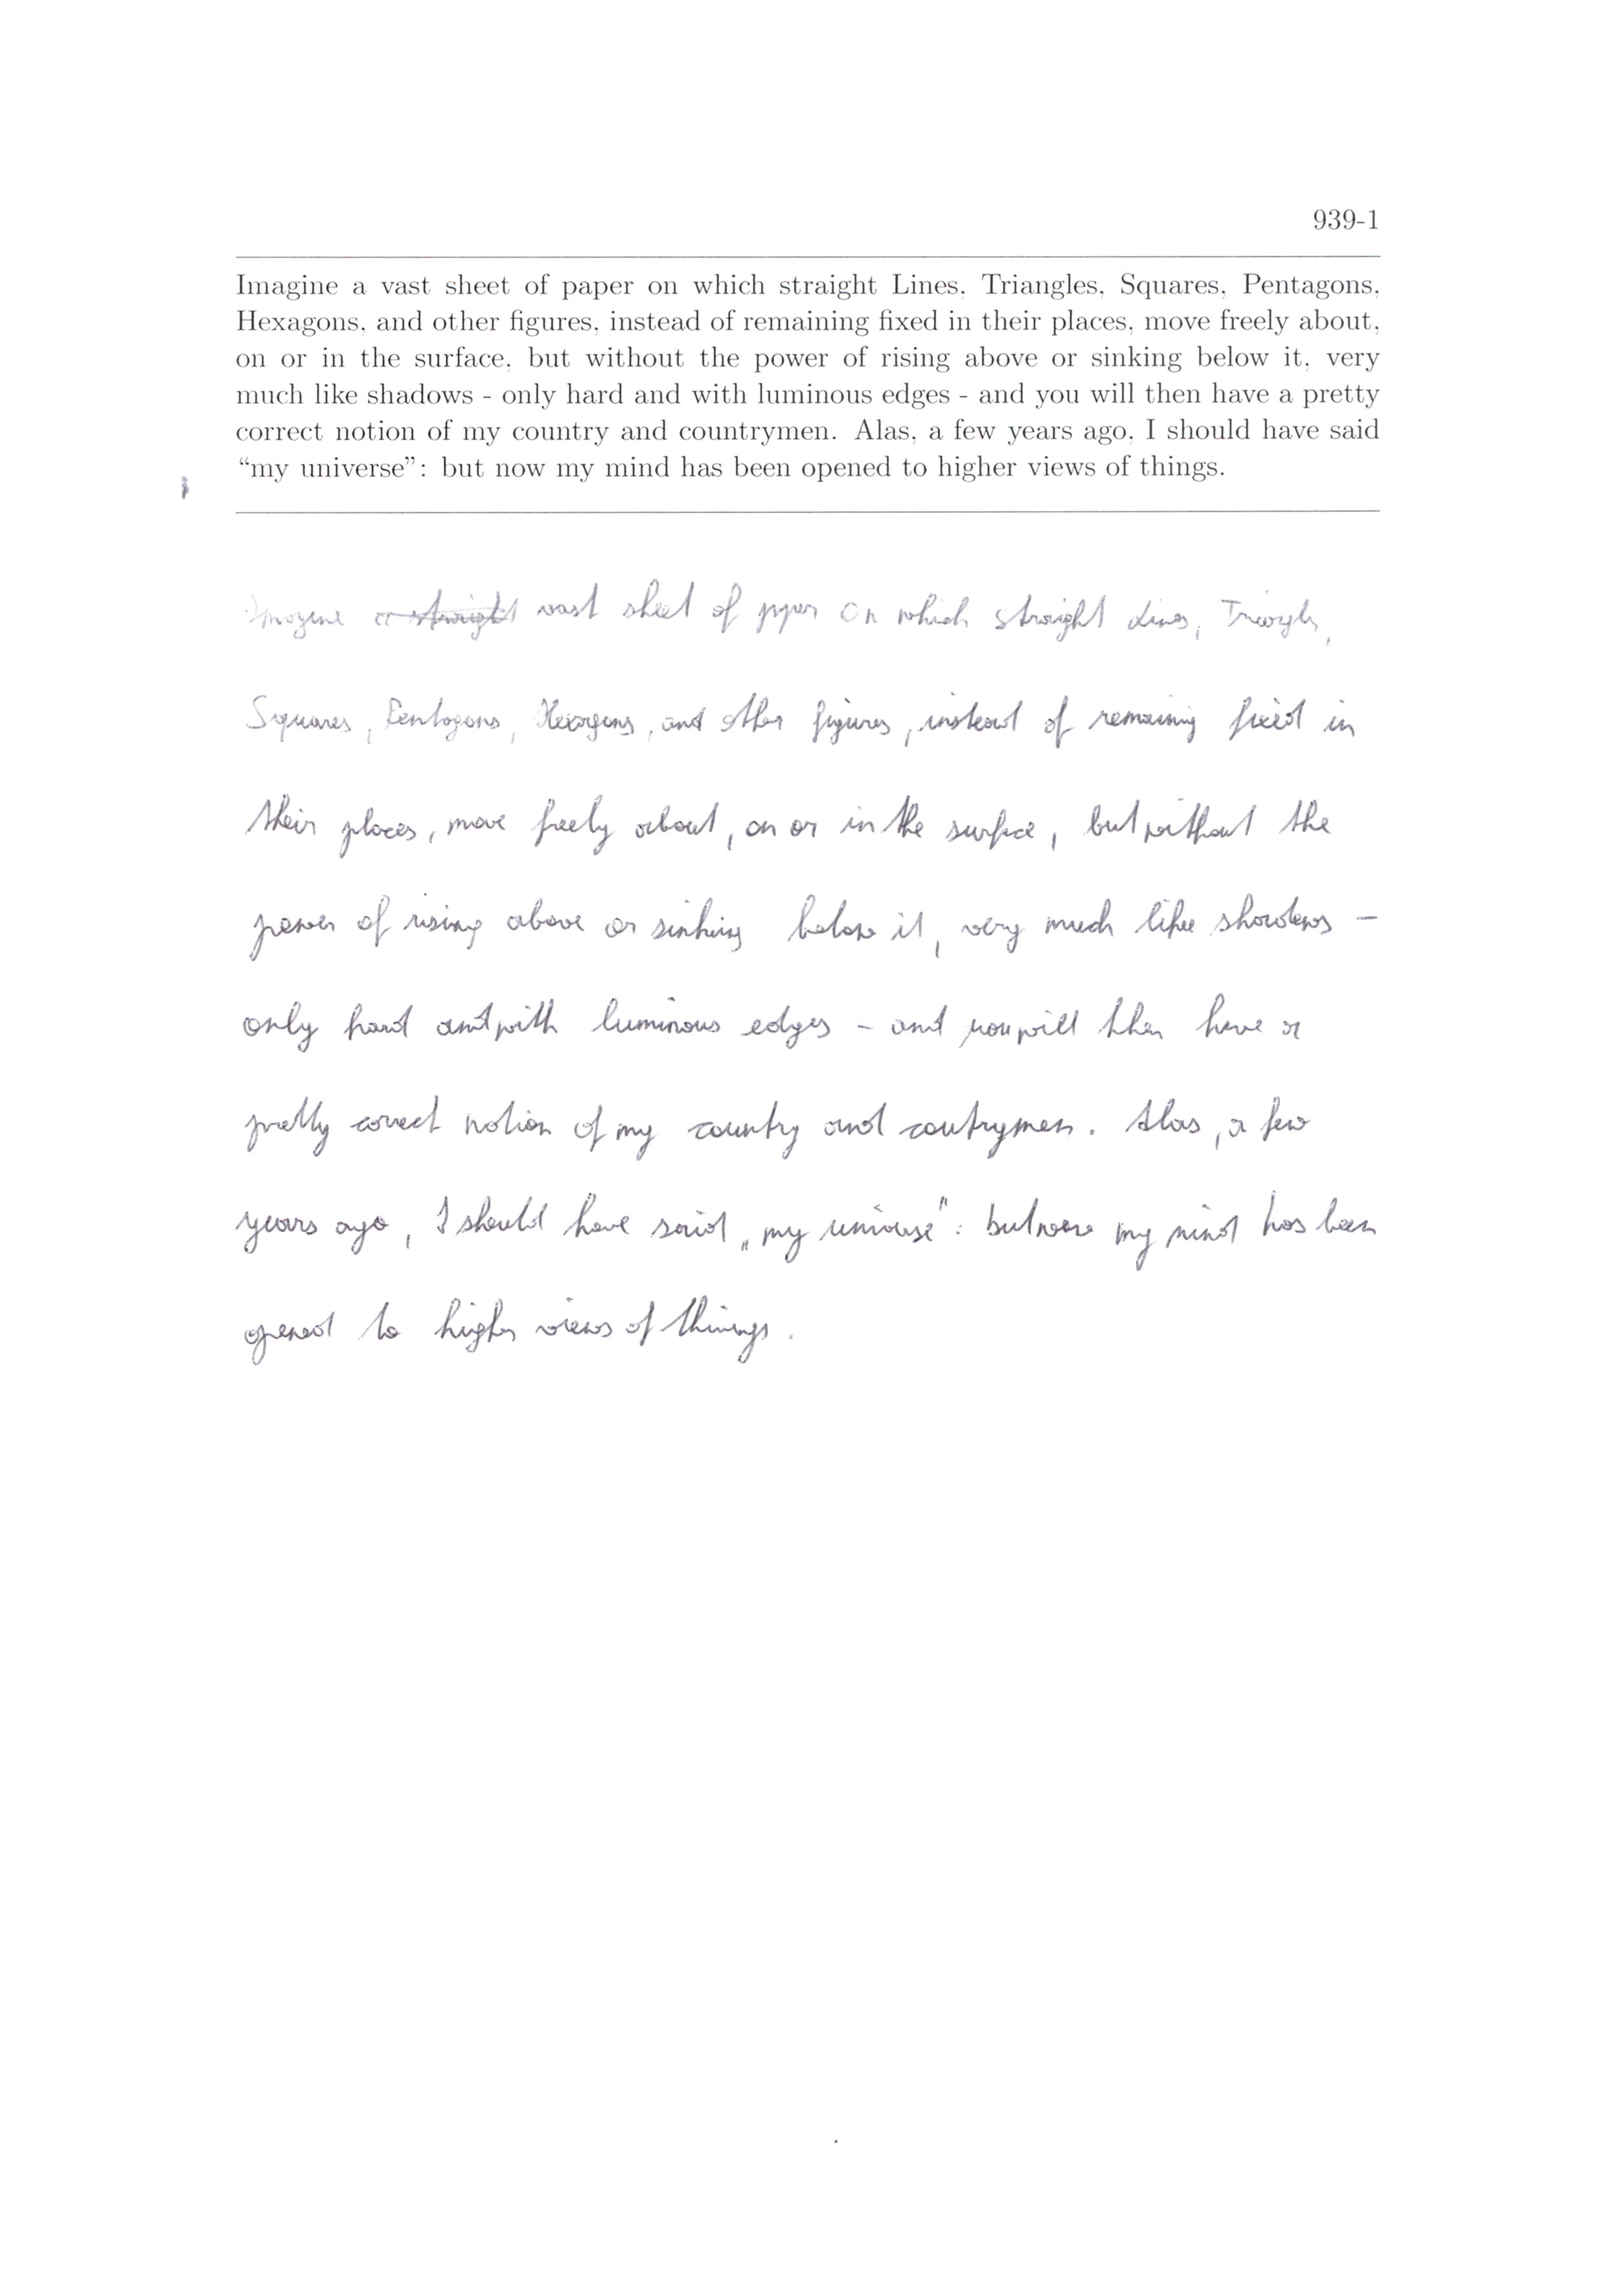 939-1
Imagine a vast sheet of paper on which straight Lines, Triangles, Squares, Pentagons,
Hexagons, and other figures, instead of remaining fixed in their places, move freely about,
on or in the surface, but without the power of rising above or sinking below it, very
much like shadows - only hard and with luminous edges - and you will then have a pretty
correct notion of my country and countrymen. Alas, a few years ago, I should have said
“my universe”: but now my mind has been opened to higher views of things.
Imagine a straight vast sheet of paper on which straight Lines, Triangles,
Squares, Pentagons, Hexagons, and other figures, instead of remaining fixed in
their places, move freely about, on or in the surface, but without the
power of rising above or sinking below it, very much like shadows -
only hard and with luminous edges - and you will then have a
pretty correct notion of my country and coutrymen. Alas, a few
years ago, I should have said „my universe": but now my mind has been
opened to higher views of things.